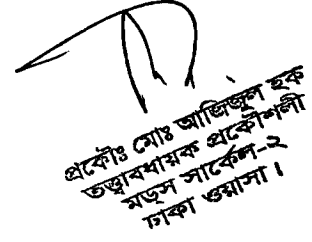 প্রকৌঃ মোঃ আজিজুল হক
তত্ত্বাবধায়ক প্রকৌশলী
মড্স সার্কেল-২
ঢাকা ওয়াসা।